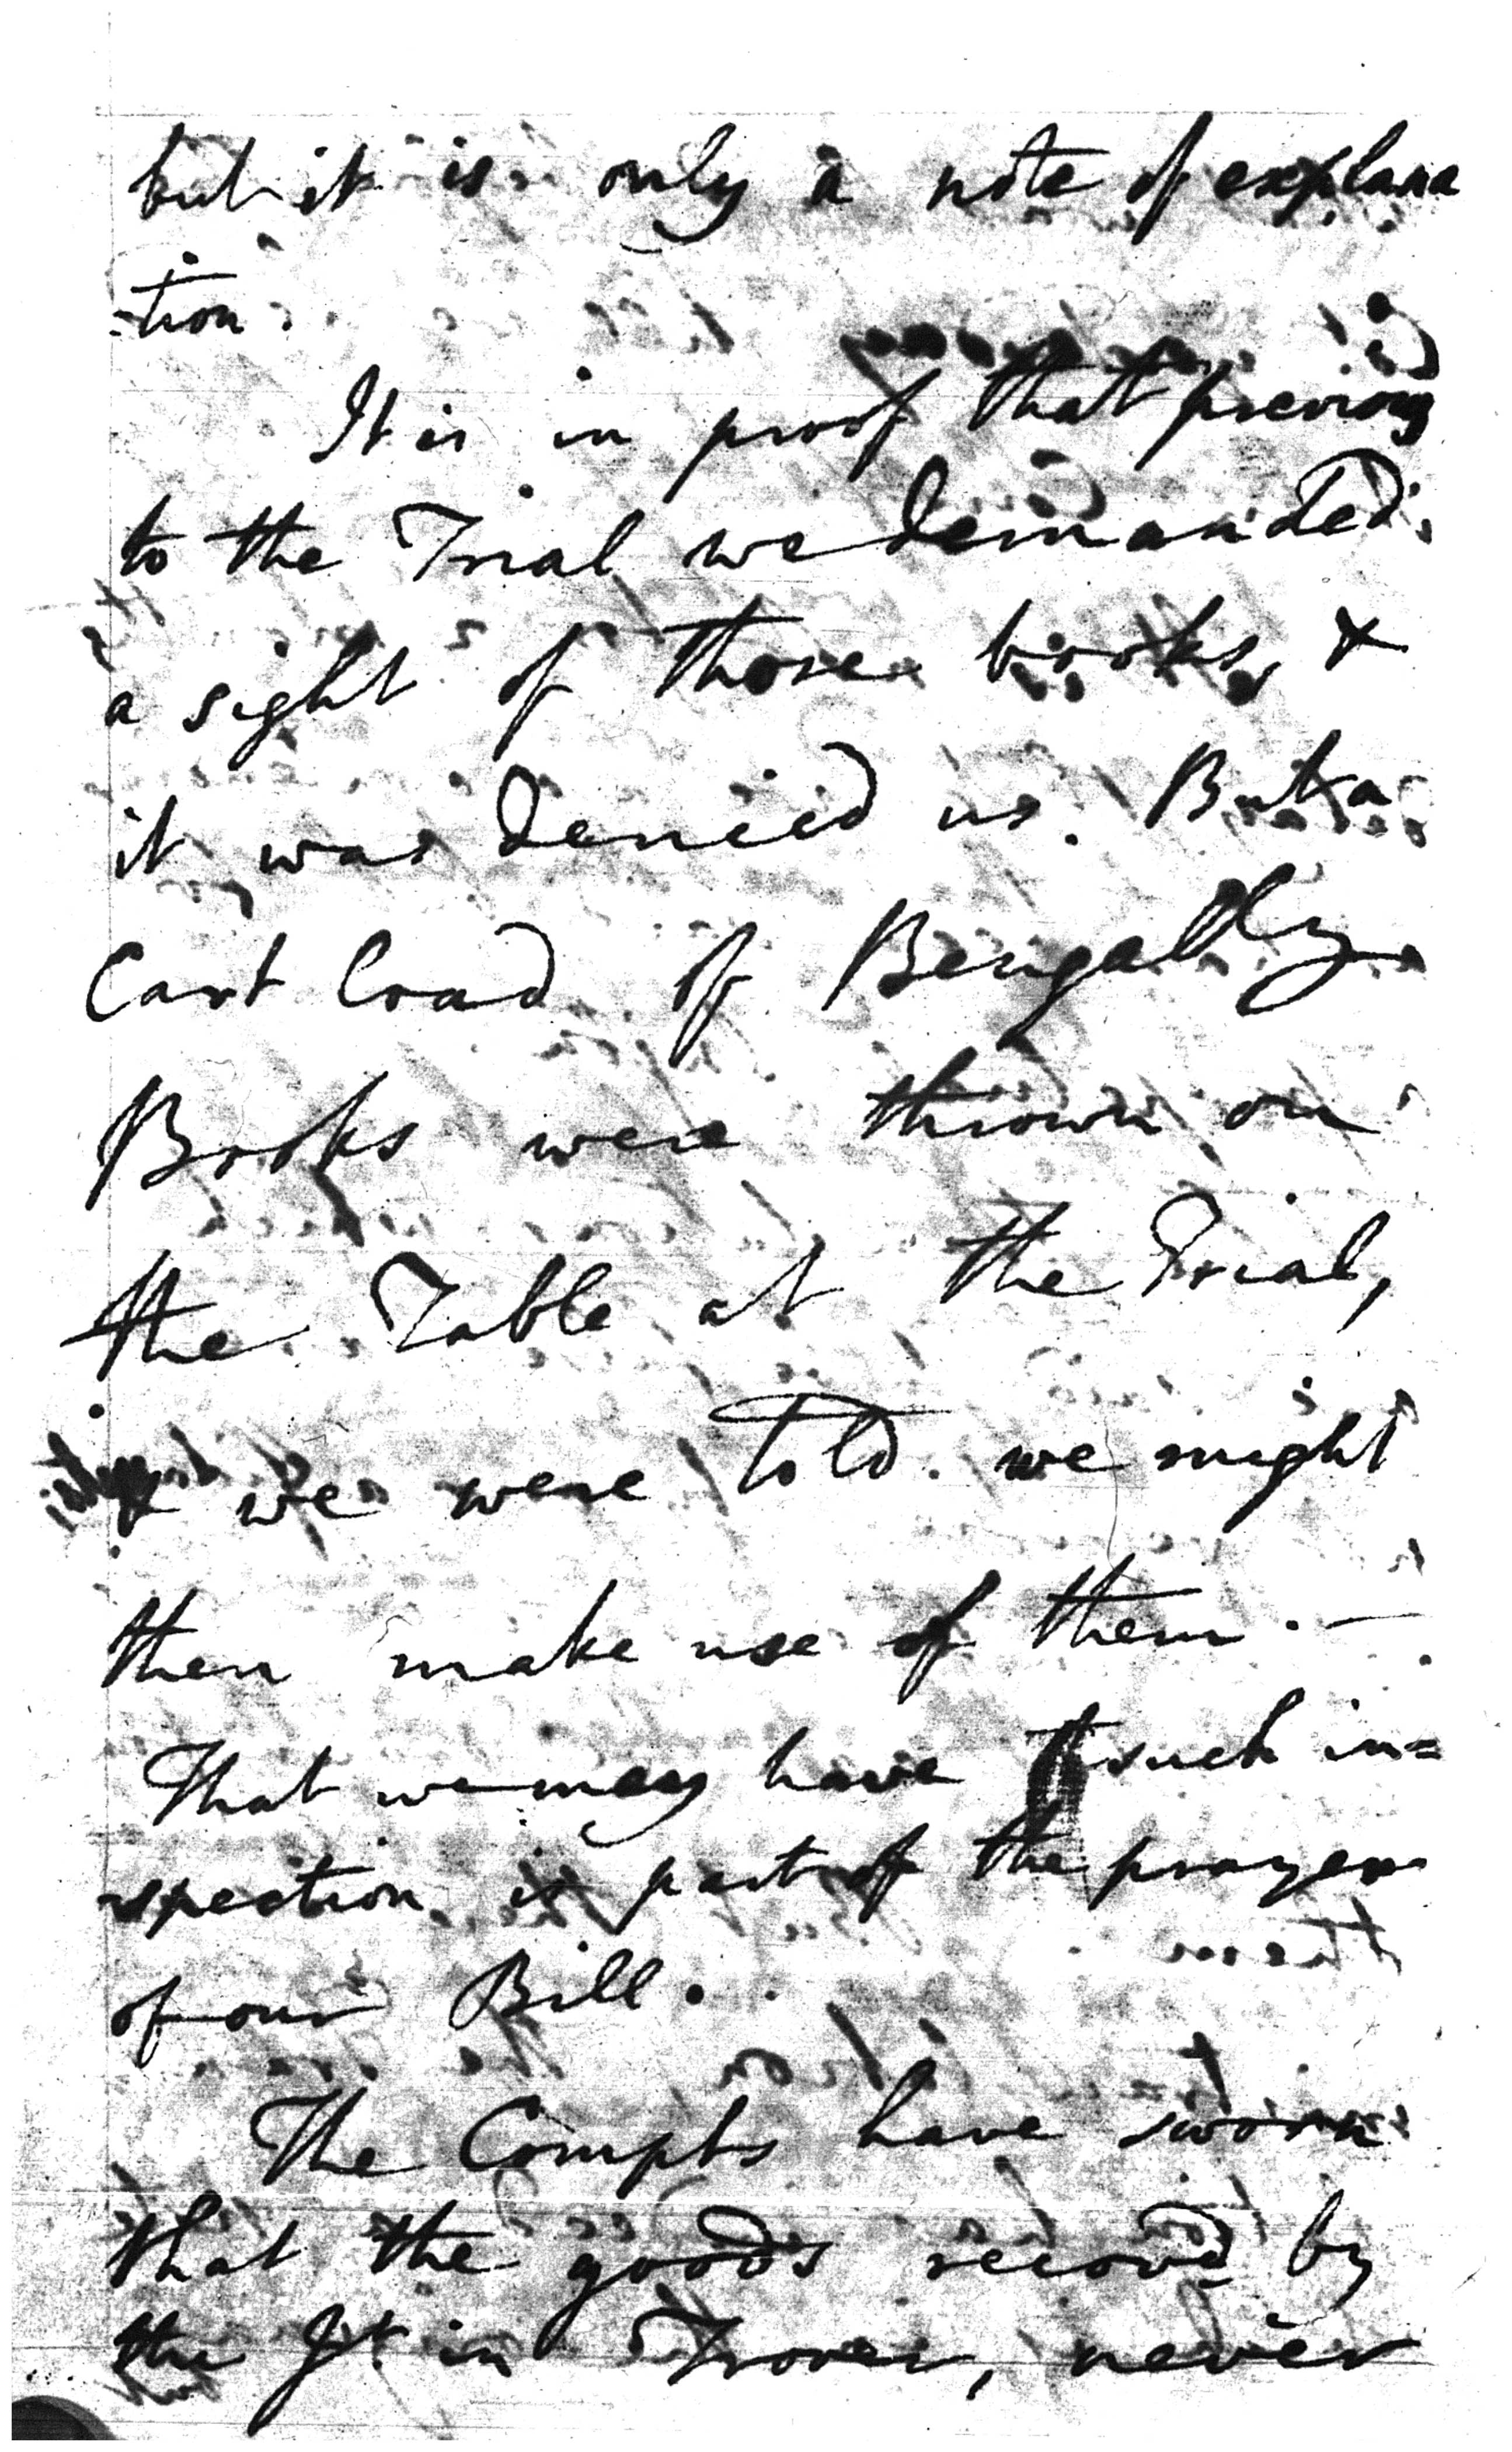 but it is only a note of explana
-tion.
It is in proof that previous
to the Trial we demanded
a sight of those books, &
it was denied us. But a
Cart load of Bengally
Books were thrown on
the Table at the Trial,
& we were told we might
then make use of them. —
That we may have such in=
spection is part of the prayer
of our Bill.
The Compts have sworn
that the goods recovd by
the Jt in Trover, never